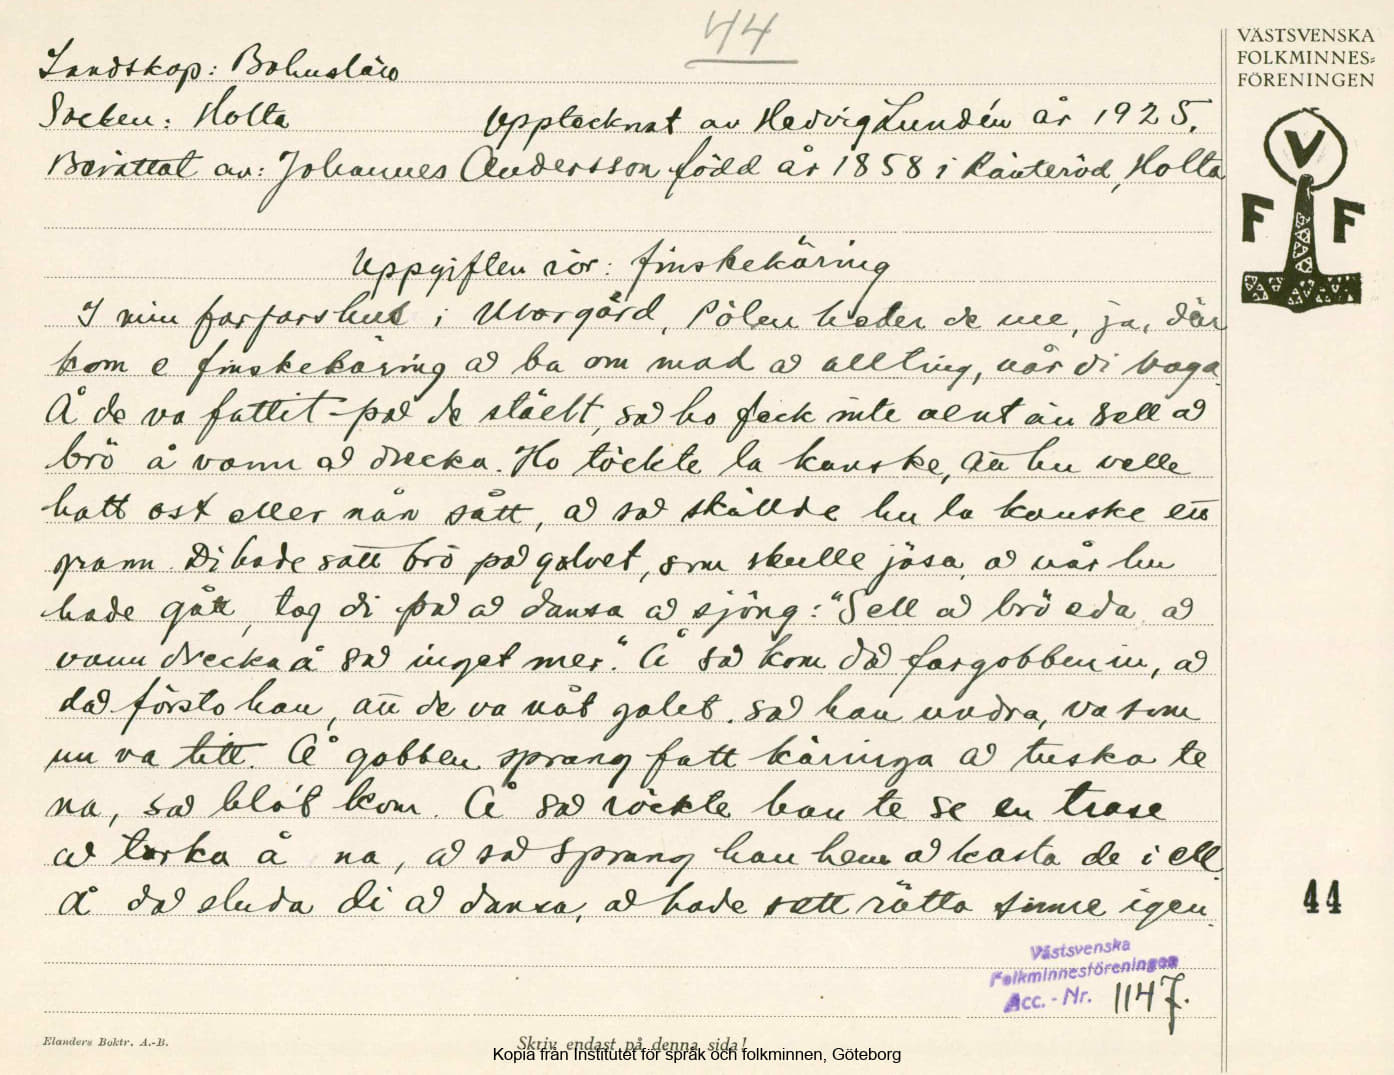 44
VÄSTSVENSKA
FOLKMINNES-
FÖRENINGEN
Landskap: Bohuslän
Socken: Holta Upptecknat av Hedvig Lundén år 1925.
Berättat av: Johannes Andersson född år 1858 i Ränteröd, Holta
V
F F
Uppgiften rör: finskekäring
I min farfars hus i Utorgård, Pölen heder de me, ja, där
kom e finskekäring å ba om mad å allting, når di baga.
Å de va fattit på de stäelt, så ho feck inte aent än sell å
brö å vann å drecka. Ho töckte la kanske, att hu velle
hatt ost eller nån sått, å så skällde hu la kanske en
grann. Di hade satt brö på golvet, som skulle jösa, å når hu
hade gått, tog di på å dansa å sjöng: "Sell å brö eda å
vann drecka å så inget mer". Å så kom då fargobben in, å
då försto han, att de va nåt galet. så han undra, va som
nu va titt. Å gobben sprang fatt käringa å tuska te
na, så blöt kom. Å så röckte han te se en trase
å torka å na, å så sprang han hem å kasta de i ell.
Å då sluda di å dansa, å hade sett rätta sinne igen.
44
Västsvenska
Folkminnesföreningen
Acc. - Nr. 1147.
Elanders Boktr. A.-B.
Skriv endast på denna sida!
Kopia från Institutet för språk och folkminnen, Göteborg